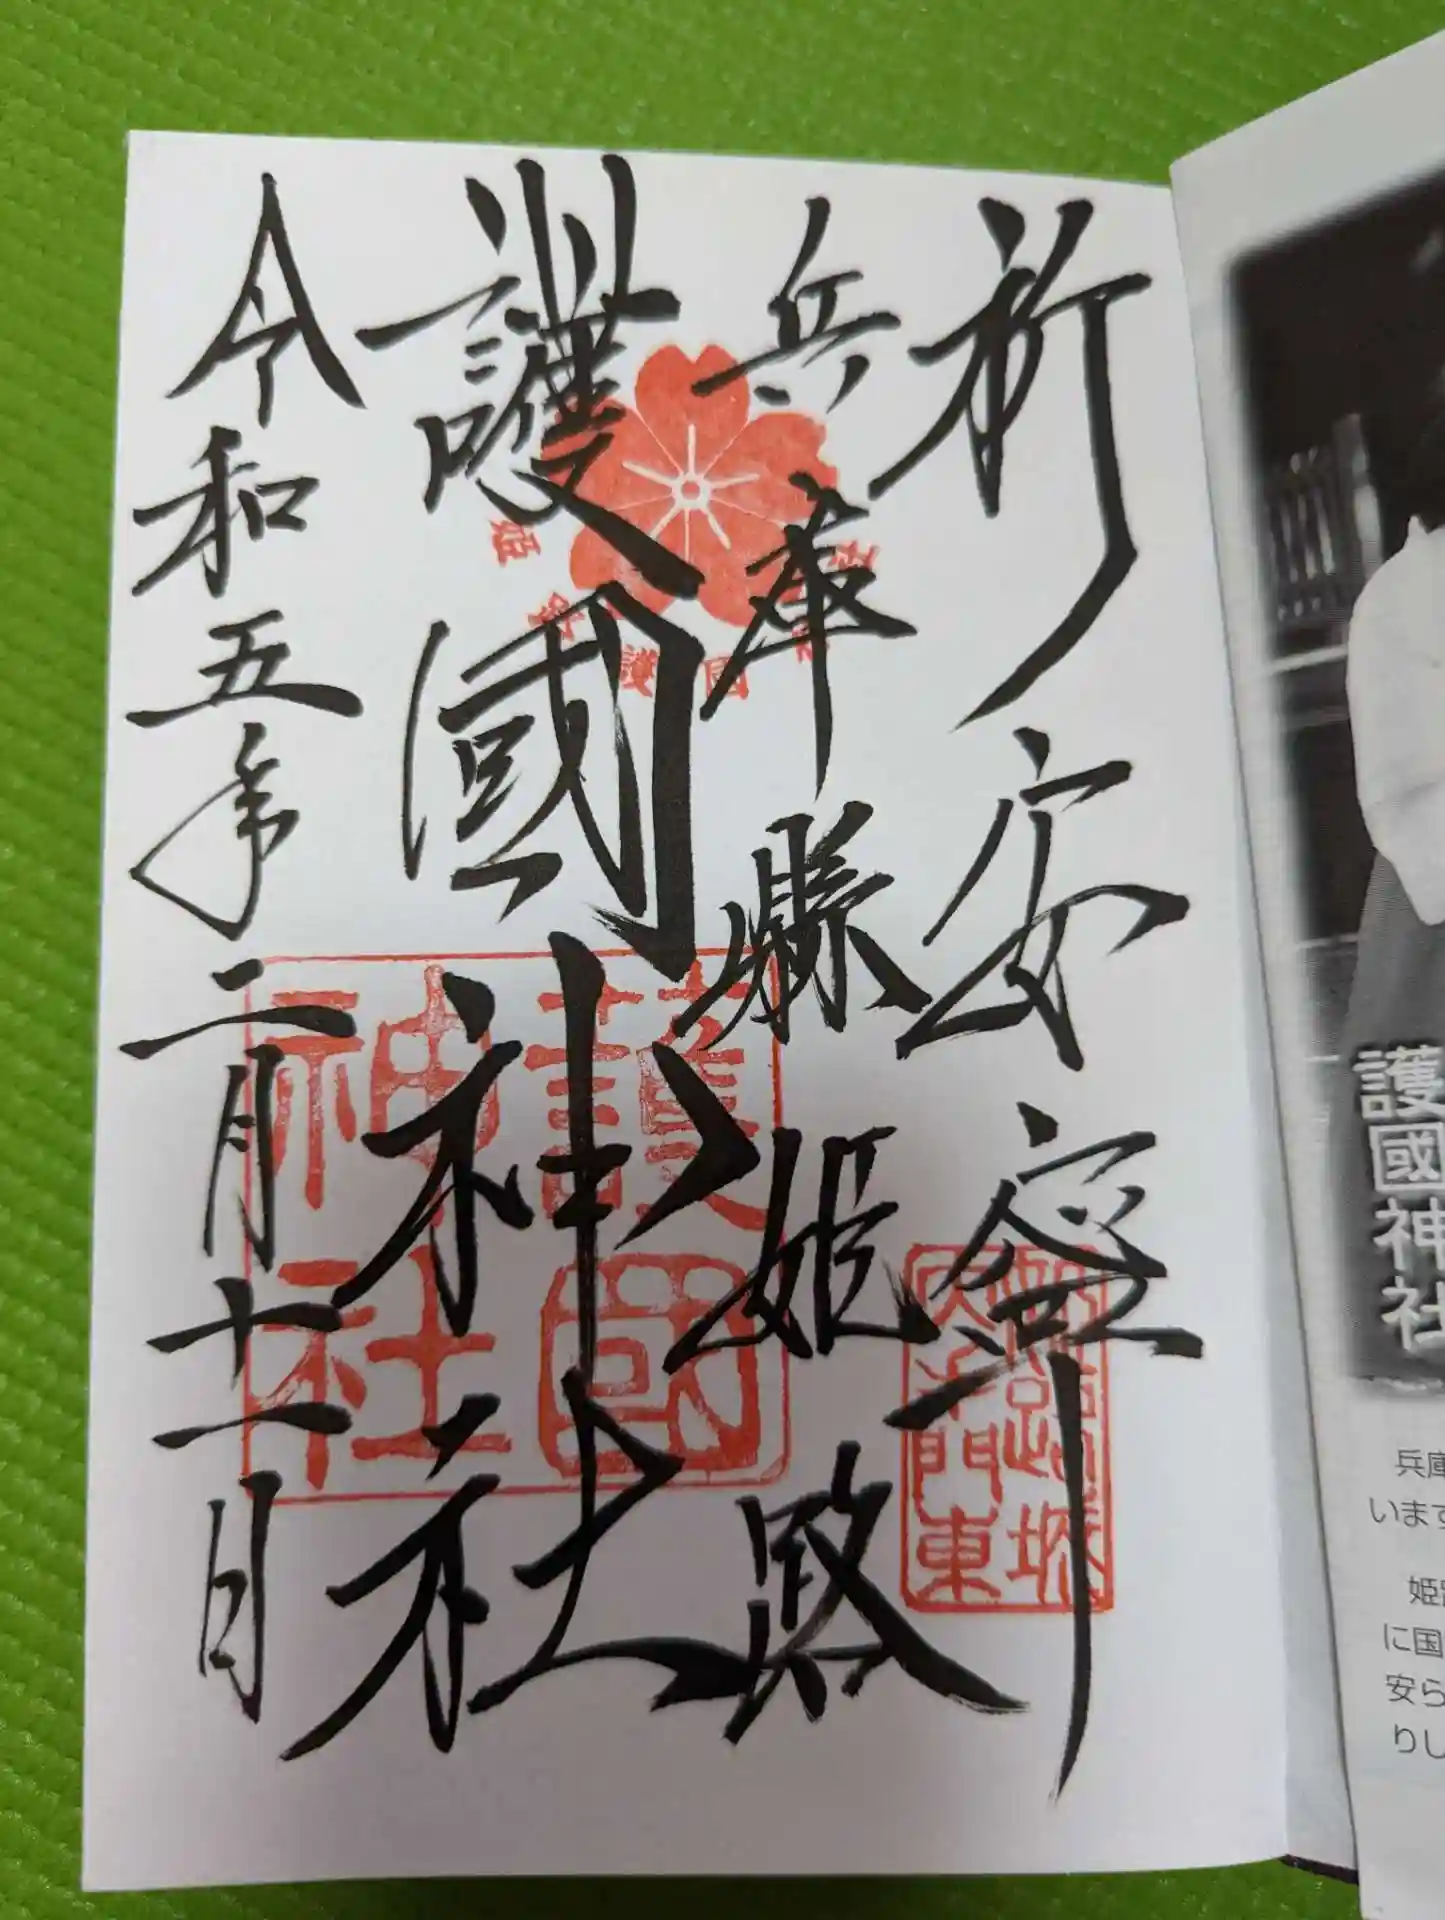 祈安寧
兵庫縣姫路
護國神社
令和五年二月十二日
護國神社
姫路城
大手門東
護國神社
兵庫
います
に国
安ら
りし